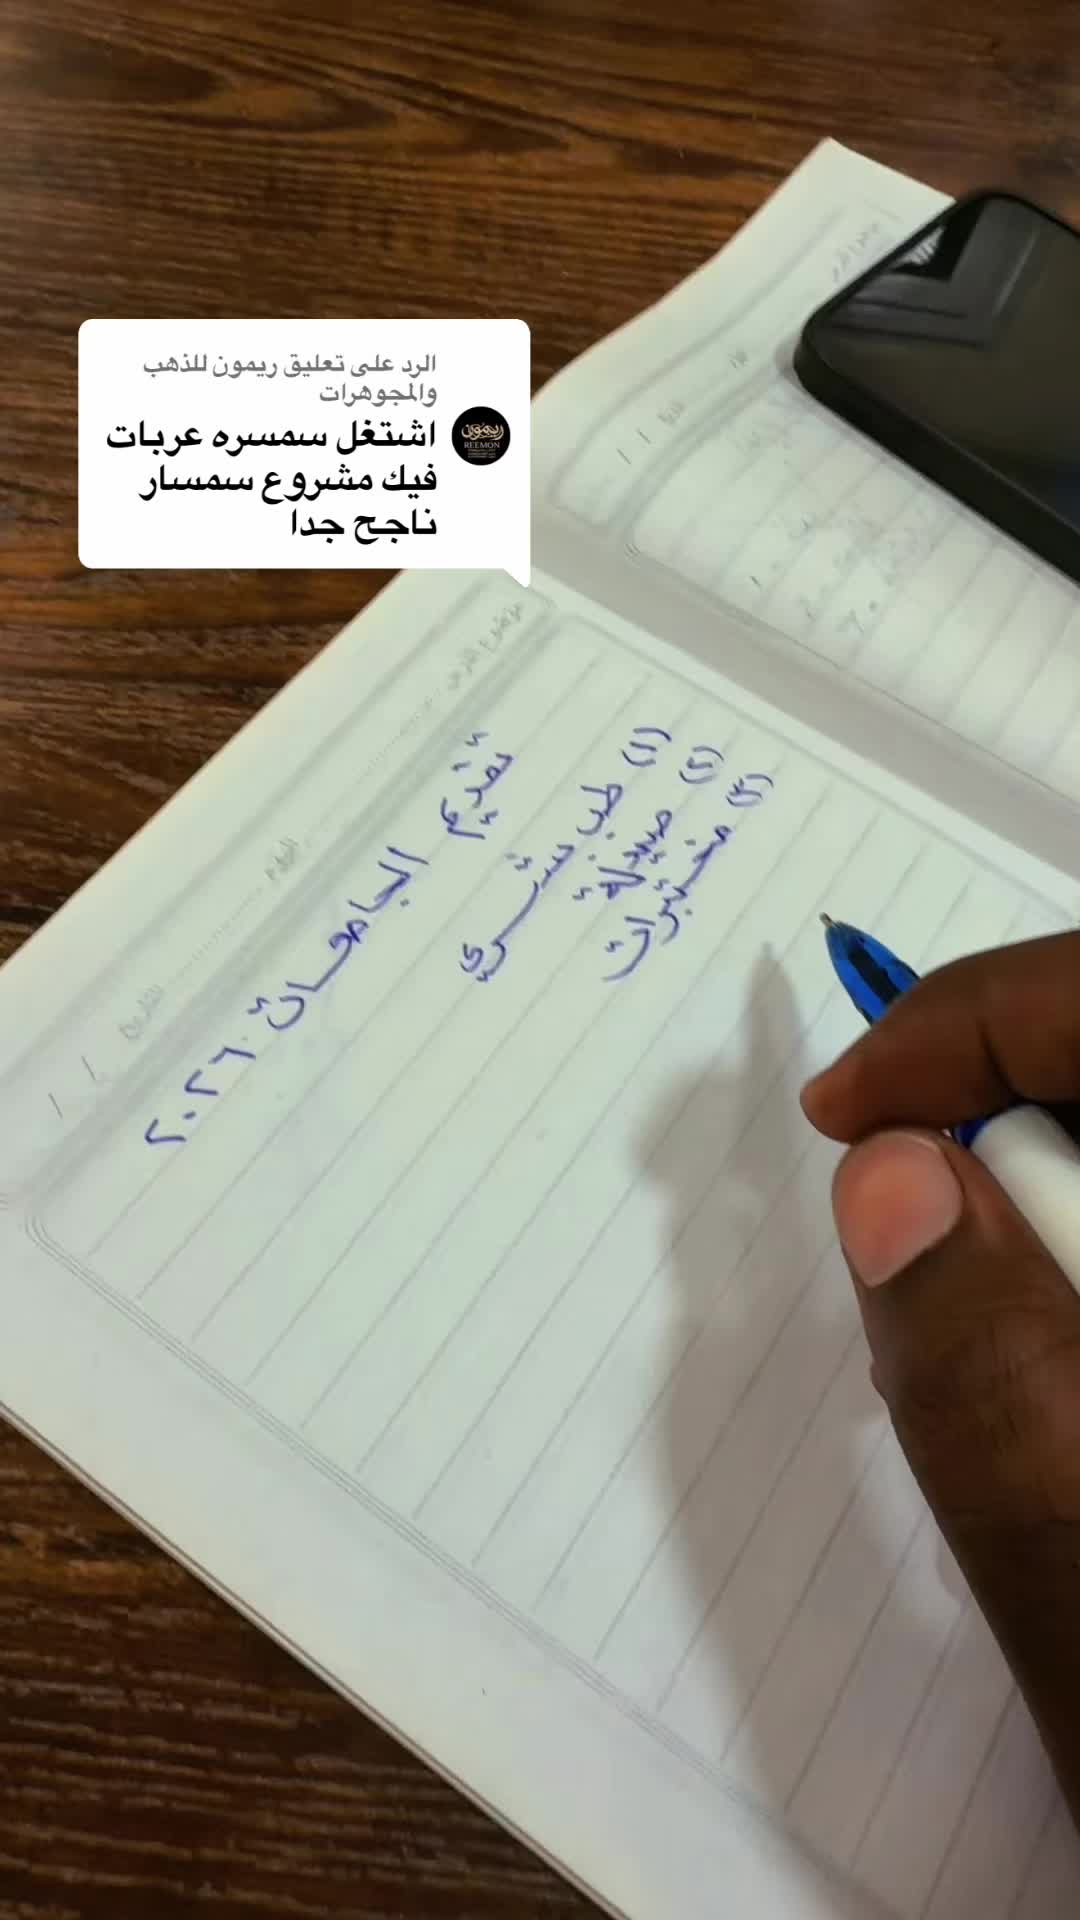 الرد على تعليق ريمون للذهب
والمجوهرات
اشتغل سمسره عربات
فيك مشروع سمسار
ناجح جدا
ريمون
REEMON
موضوع الدرس
اليوم
التاريخ / /
تقديم الجامعات ٢٠٢٦
(١) طب بشري
(٢) صيدلة
(٣) مختبرات